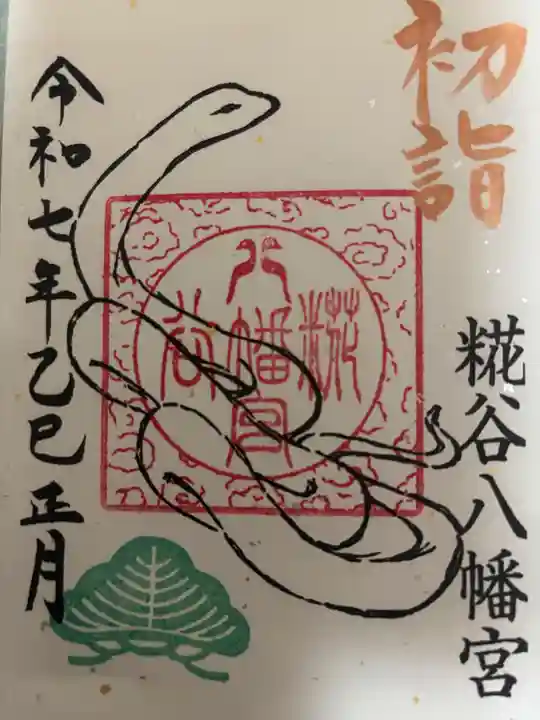 初詣
糀谷八幡宮
糀谷
八幡宮
令和七年乙巳正月